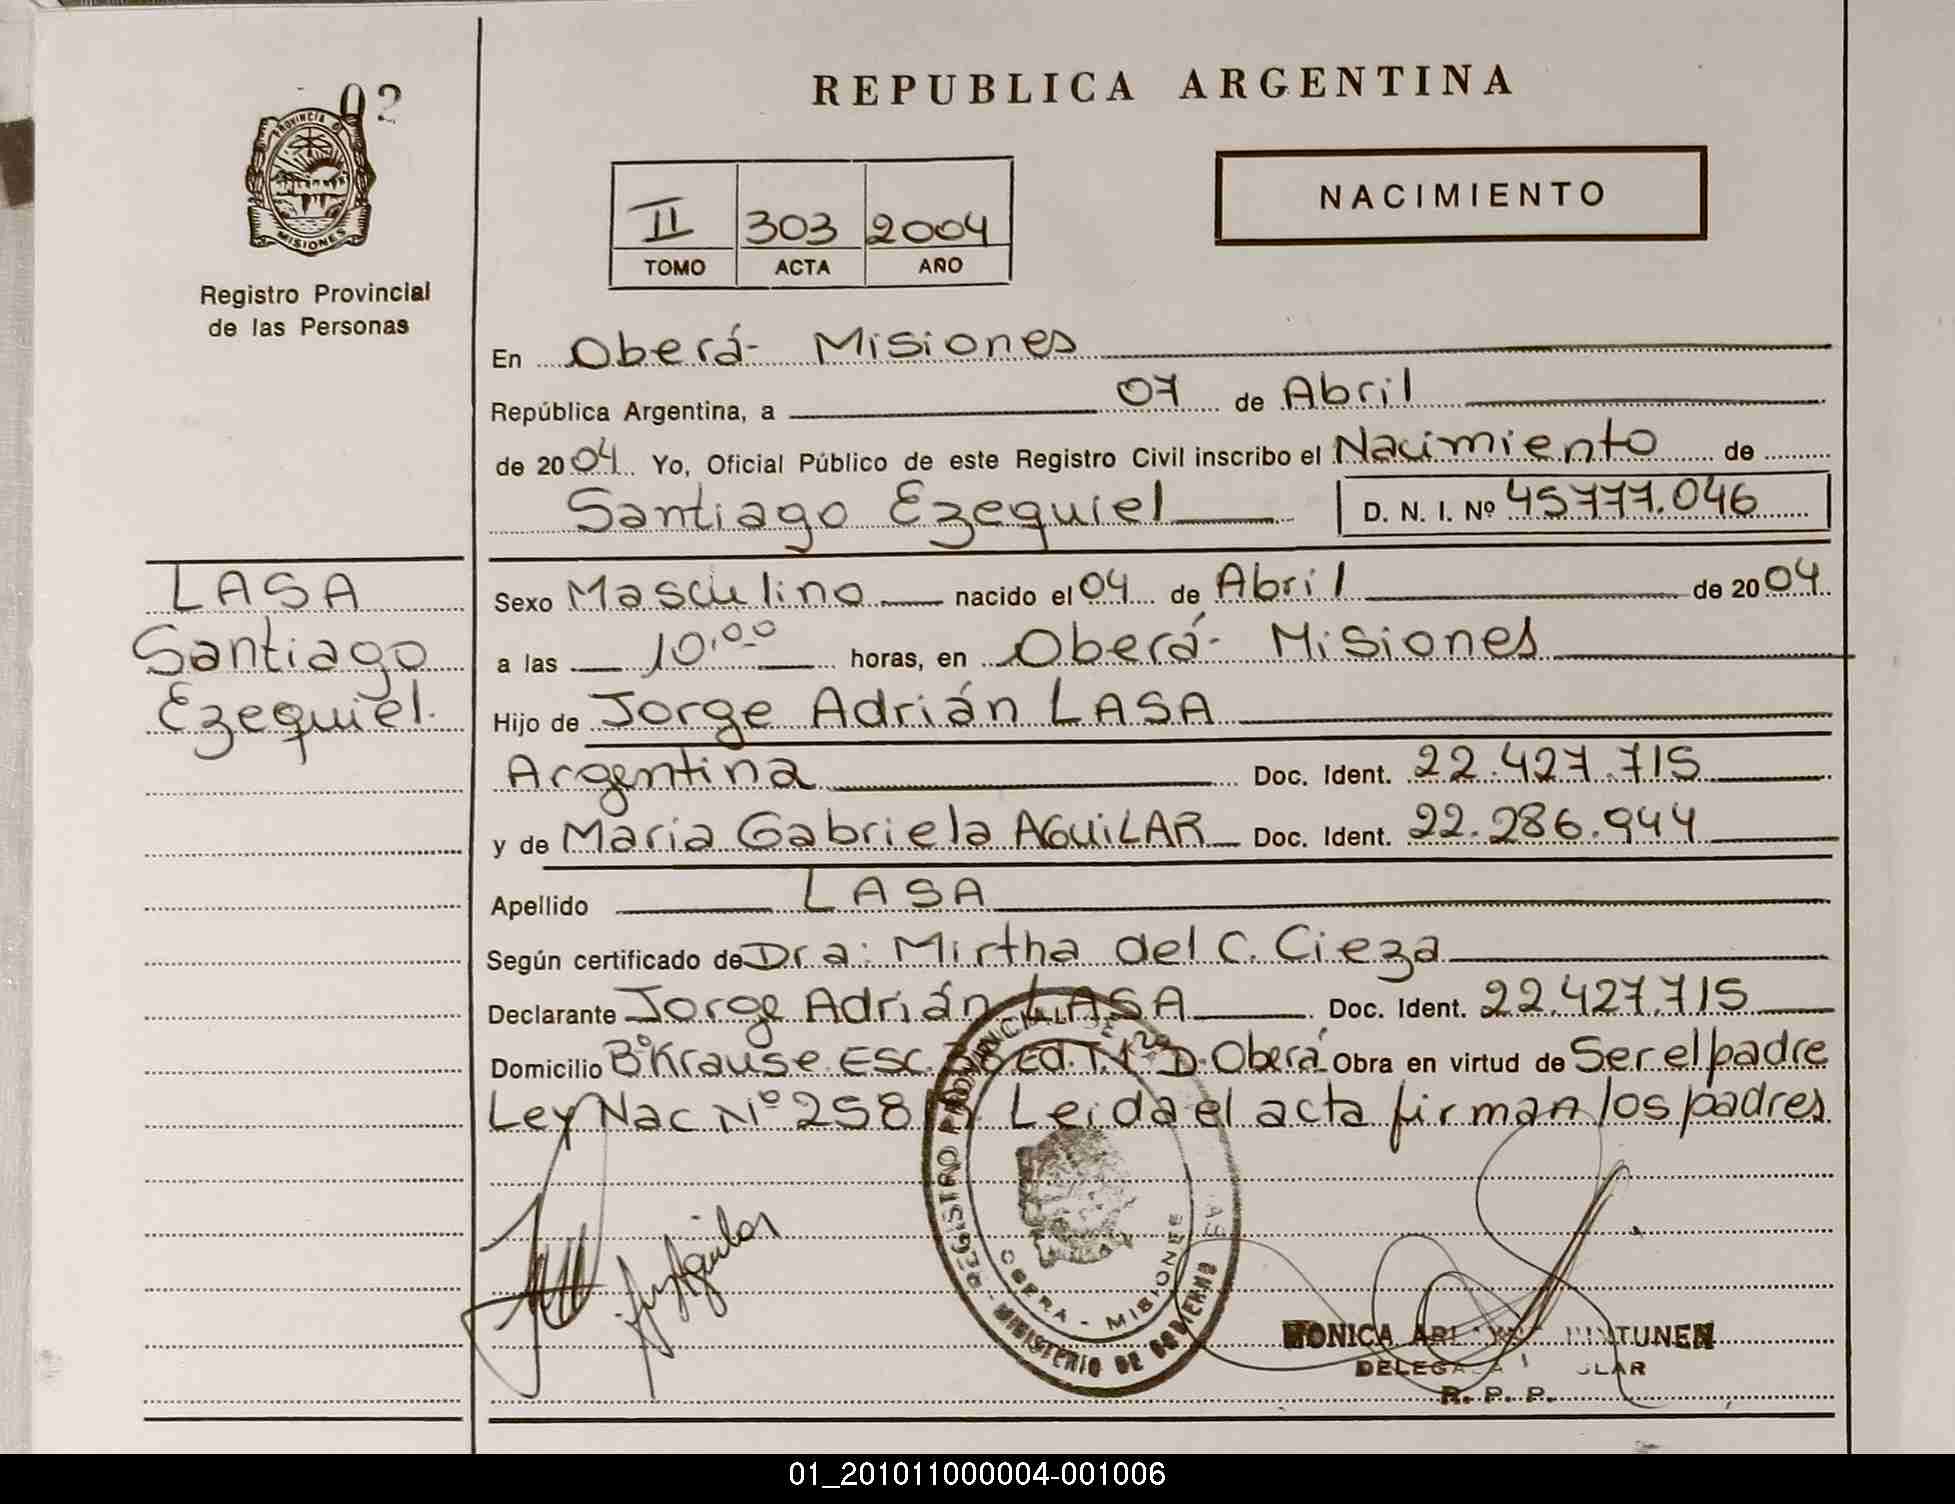 02
PROVINCIA DE
MISIONES
Registro Provincial
de las Personas
LASA
Santiago
Ezequiel.
REPUBLICA ARGENTINA
NACIMIENTO
II 303 2004
TOMO ACTA AÑO
En Oberá- Misiones
República Argentina, a 07 de Abril
de 2004 Yo, Oficial Público de este Registro Civil inscribo el Nacimiento de
Santiago Ezequiel D. N. I. Nº 45777.046
Sexo Masculino nacido el 04 de Abril de 2004
a las 10,00 horas, en Oberá- Misiones
Hijo de Jorge Adrián LASA
Argentina Doc. Ident. 22.427.715
y de Maria Gabriela AGUiLAR Doc. Ident. 22.286.944
Apellido LASA
Según certificado de Dra: Mirtha del C. Cieza
Declarante Jorge Adrián LASA Doc. Ident. 22.427.715
Domicilio BºKrause. Esc. Ed. Oberá Obra en virtud de Ser el padre
Ley Nac Nº Leida el acta firman los padres
Aguilar
REGISTRO PROVINCIAL DE
OBERA - MISIONES
MINISTERIO DE GOBIERNO
MONICA
R. P. P.
01_201011000004-001006